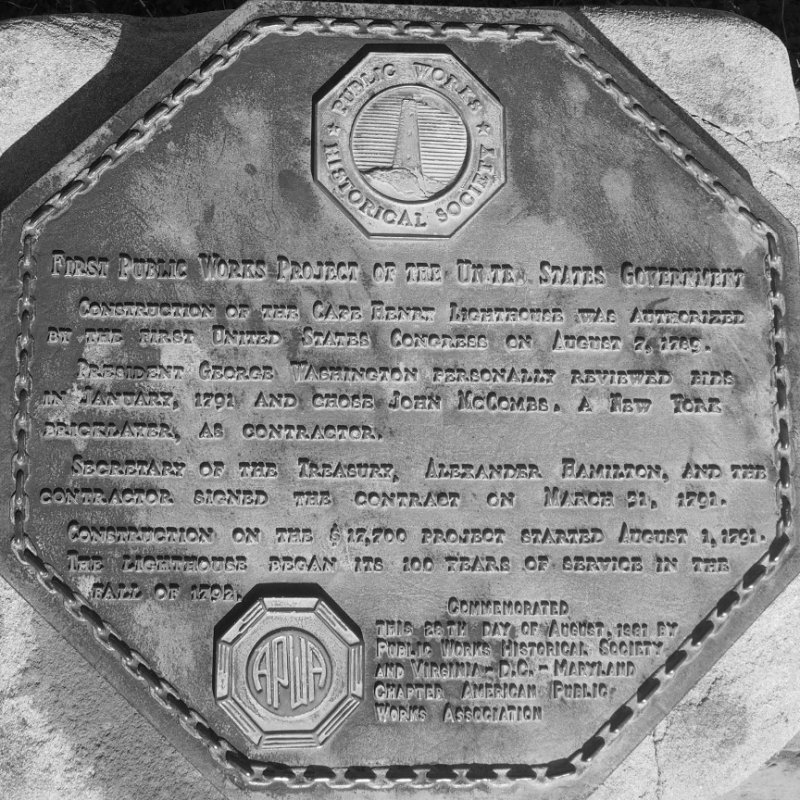 PUBLIC WORKS
HISTORICAL SOCIETY
FIRST PUBLIC WORKS PROJECT OF THE UNITED STATES GOVERNMENT
CONSTRUCTION OF THE CAPE HENRY LIGHTHOUSE WAS AUTHORIZED
BY THE FIRST UNITED STATES CONGRESS ON AUGUST 7, 1789.
PRESIDENT GEORGE WASHINGTON PERSONALLY REVIEWED BIDS
IN JANUARY, 1791 AND CHOSE JOHN MCCOMBS, A NEW YORK
BRICKLAYER, AS CONTRACTOR.
SECRETARY OF THE TREASURY, ALEXANDER HAMILTON, AND THE
CONTRACTOR SIGNED THE CONTRACT ON MARCH 31, 1791.
CONSTRUCTION ON THE $17,700 PROJECT STARTED AUGUST 1, 1791.
THE LIGHTHOUSE BEGAN ITS 100 YEARS OF SERVICE IN THE
FALL OF 1792.
APWA
COMMEMORATED
THIS 28TH DAY OF AUGUST, 1981 BY
PUBLIC WORKS HISTORICAL SOCIETY
AND VIRGINIA - D.C. - MARYLAND
CHAPTER AMERICAN PUBLIC
WORKS ASSOCIATION